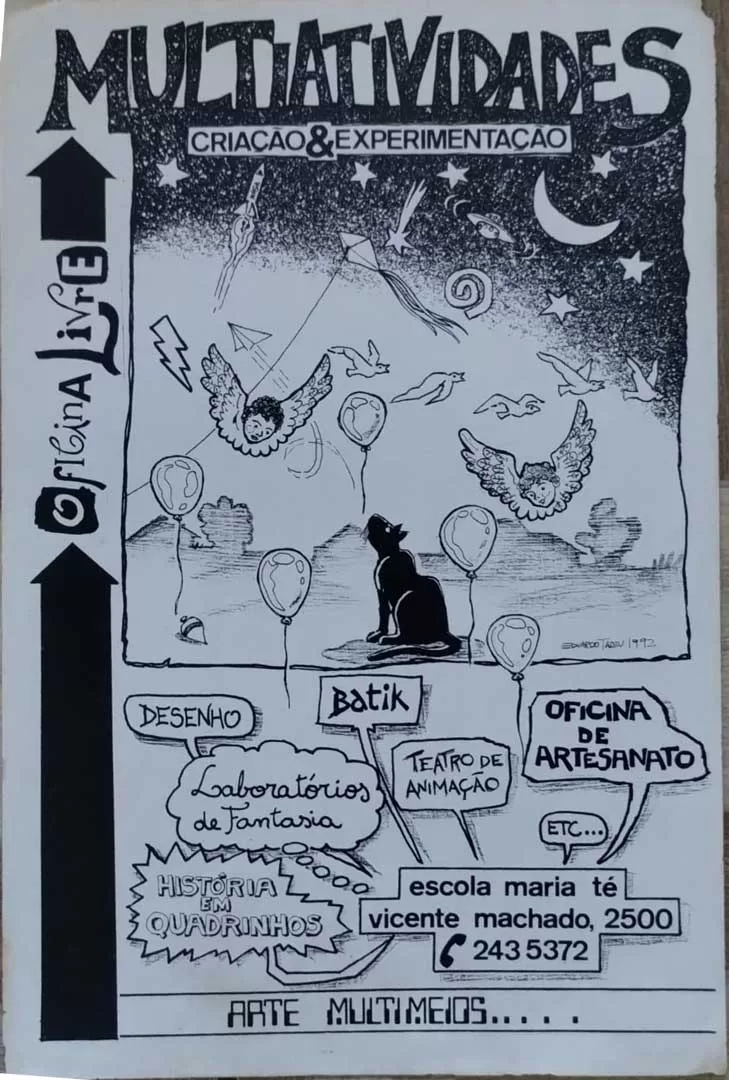 MULTIATIVIDADES
CRIAÇÃO & EXPERIMENTAÇÃO
OFICINA LIVRE
NASA
EDUARDO TADEU 1992
DESENHO
Batik
OFICINA
DE
ARTESANATO
Laboratórios
de Fantasia
TEATRO DE
ANIMAÇÃO
ETC...
HISTÓRIA
EM
QUADRINHOS
escola maria té
vicente machado, 2500
243 5372
ARTE MULTIMEIOS.....